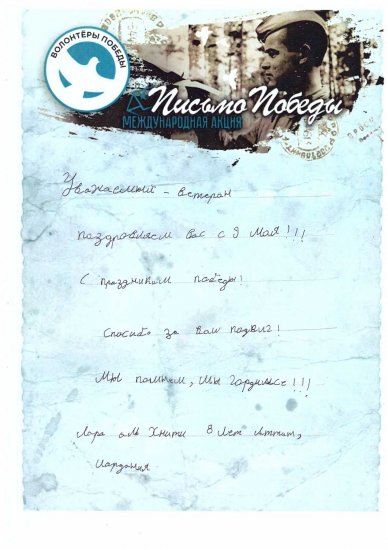 ВОЛОНТЁРЫ ПОБЕДЫ
Письмо Победы
МЕЖДУНАРОДНАЯ АКЦИЯ
Уважаемый - ветеран
поздравляем вас с 9 мая!!!
С праздником победы!
Спасибо за ваш подвиг!
Мы помним, мы гордимся!!!
Лара аль Хнити 8 лет
Иордания